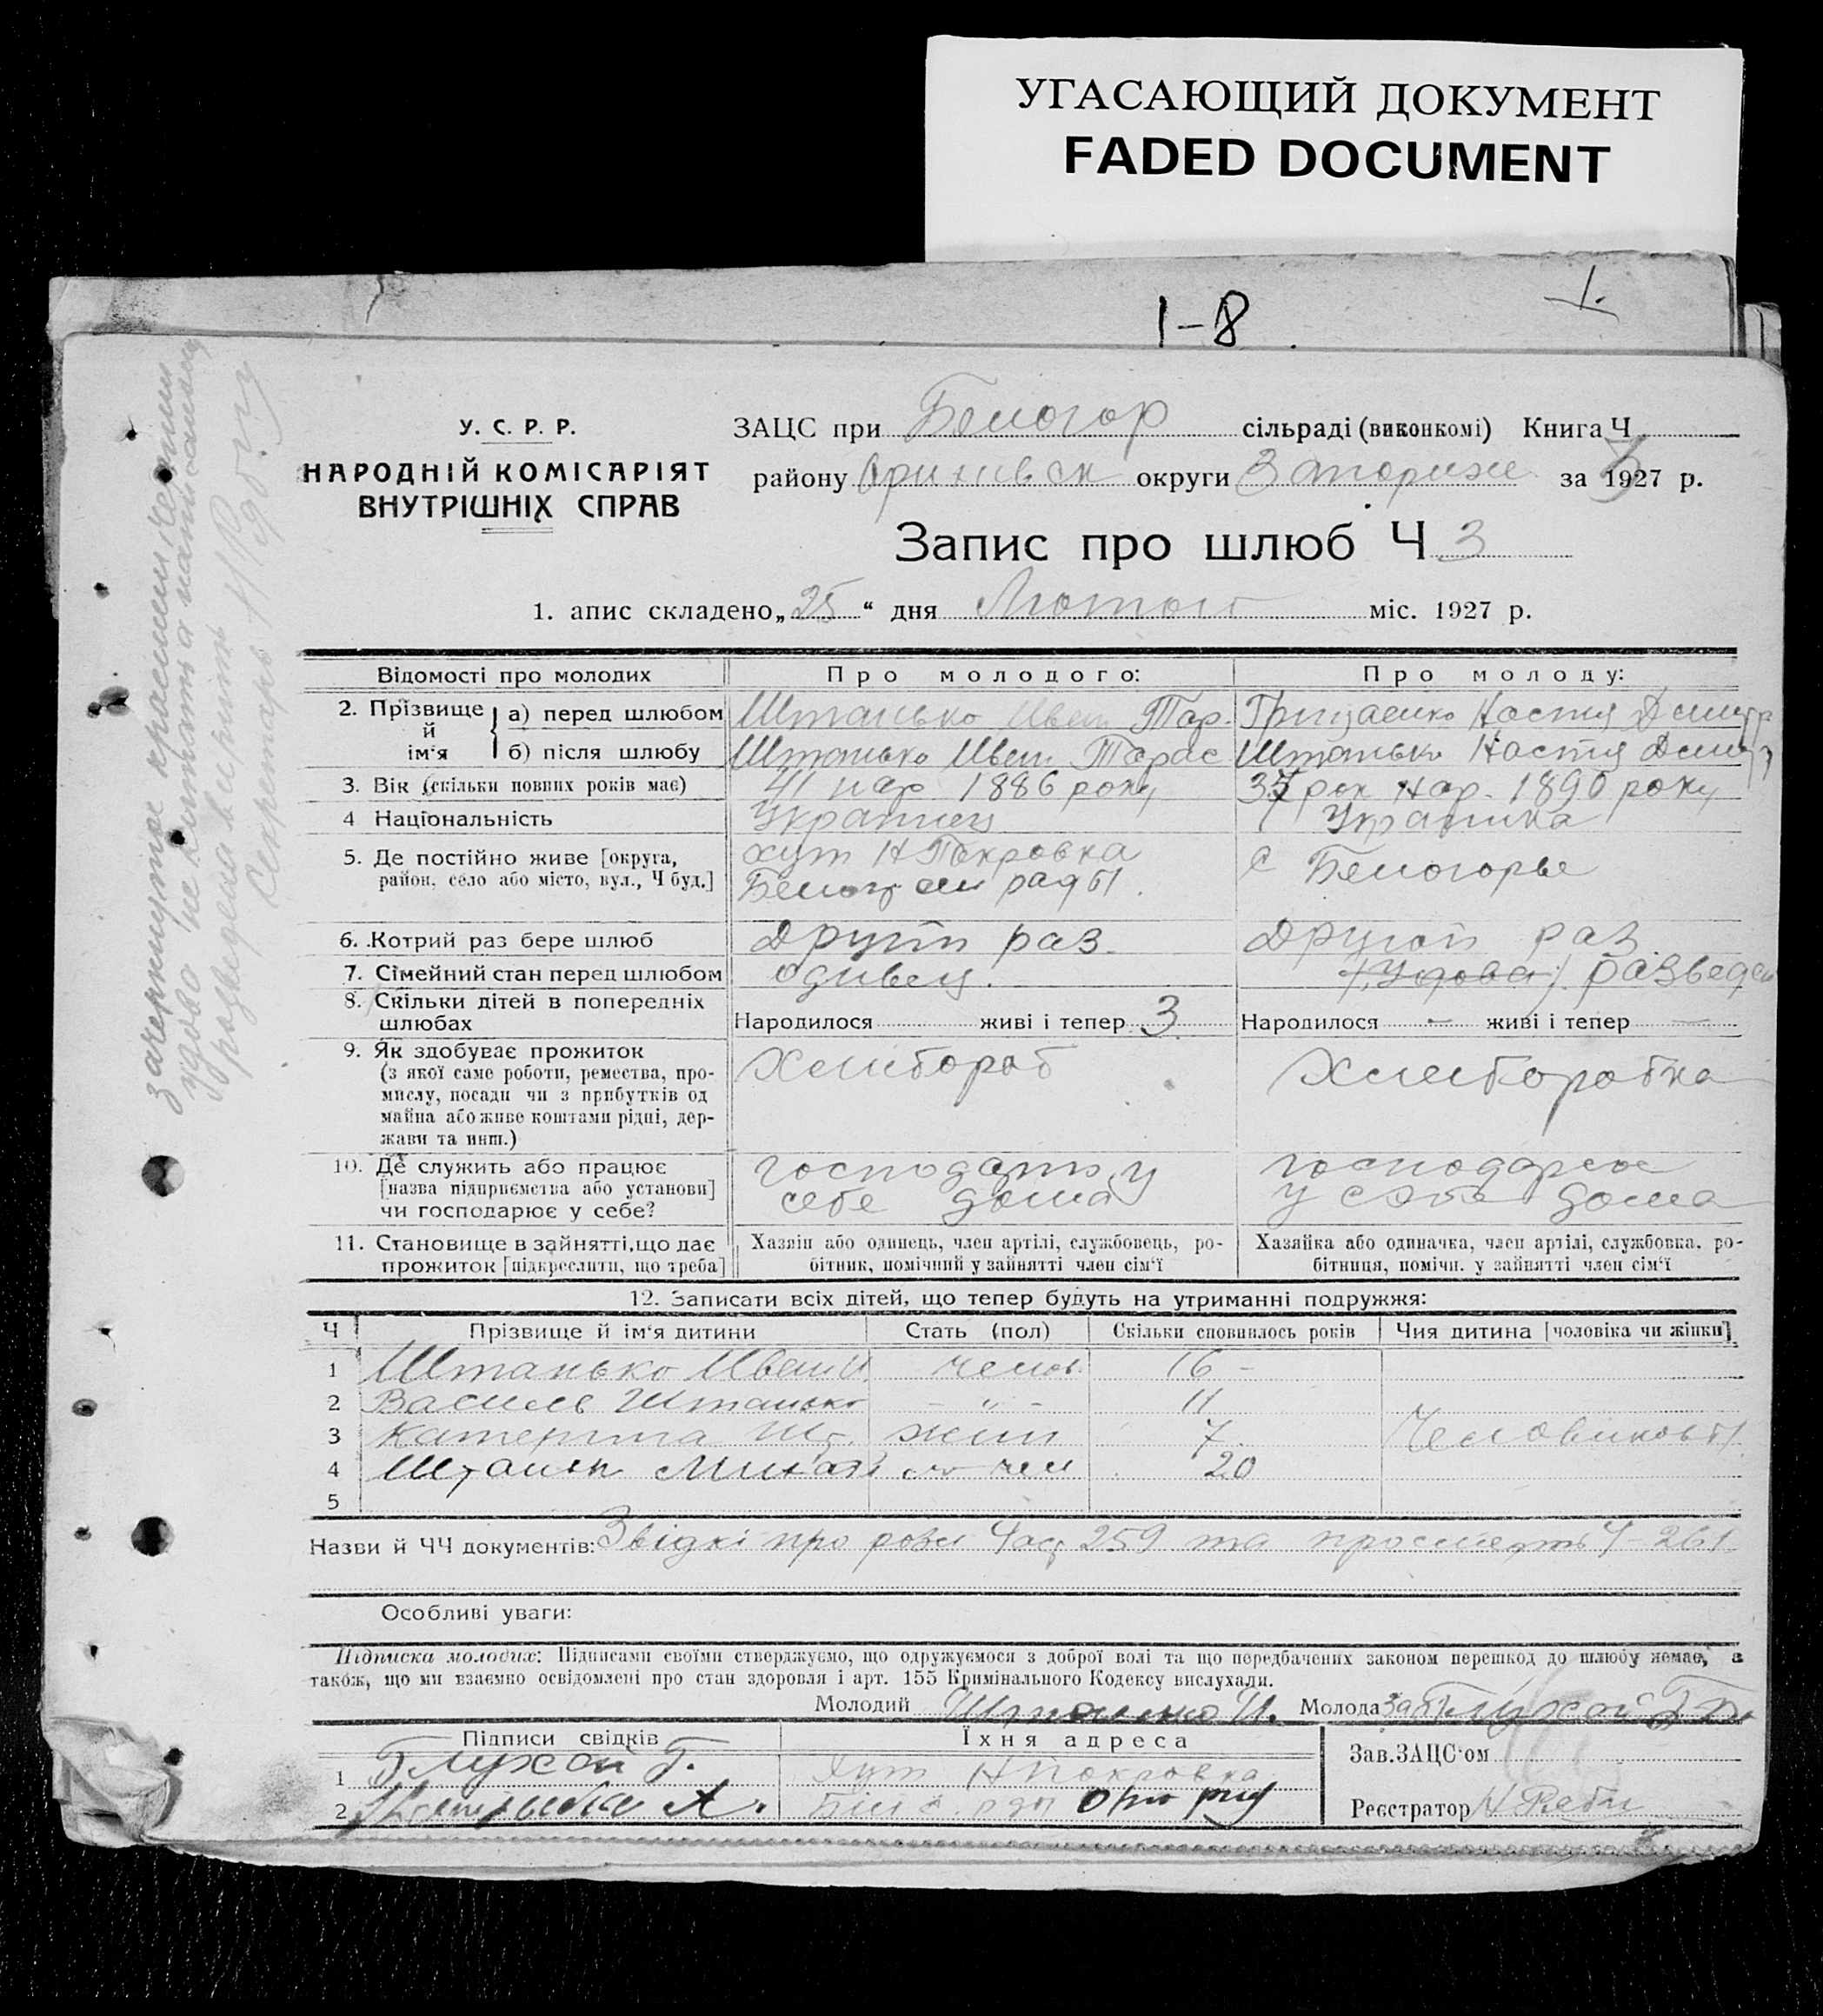 УГАСАЮЩИЙ ДОКУМЕНТ
FADED DOCUMENT
1-8
1.
У. С. Р. Р.
НАРОДНІЙ КОМІСАРІЯТ
ВНУТРІШНІХ СПРАВ
ЗАЦС при Белогор сільраді (виконкомі) Книга Ч
району Орихивск округи Запориже за 1927 р.
Запис про шлюб Ч 3
1. апис складено „25“ дня Лютого міс. 1927 р.
Відомості про молодих Про молодого: Про молоду:
2. Прізвище й ім‘я а) перед шлюбом Штанько Иван Тар. Грицаенко Настя Дмитр
б) після шлюбу Штанько Иван Тарас Штанько Настя Дмитр
3. Вік (скільки повних років має) 41 нар 1886 року 37 рок нар. 1890 року
4 Національність Украинец Украинка
5. Де постійно живе [округа, район, село або місто, вул., Ч буд.] хут Н Покровка с Белогорье
Белог рады.
6. Котрий раз бере шлюб Другий раз Другой раз
7. Сімейний стан перед шлюбом одивец. (Удова) разведен
8. Скільки дітей в попередніх шлюбах Народилося живі і тепер 3 Народилося - живі і тепер -
9. Як здобуває прожиток Хлибороб Хлиборобка
(з якої саме роботи, ремества, про-
мислу, посади чи з прибутків од
майна або живе коштами рідні, дер-
жави та инш.)
10. Де служить або працює господарю у господарюе
[назва підприємства або установи] себе дома у себе дома
чи господарює у себе?
11. Становище в зайнятті, що дає Хазяїн або одинець, член артілі, службовець, ро- Хазяйка або одиначка, член артілі, службовка, ро-
прожиток [підкреслити, що треба] бітник, помічний у зайнятті член сім‘ї бітниця, помічн. у зайнятті член сім‘ї
12. Записати всіх дітей, що тепер будуть на утриманні подружжя:
Ч Прізвище й ім‘я дитини Стать (пол) Скільки сповнилось років Чия дитина [чоловіка чи жінки]
1 Штанько Иван И. челов. 16 -
2 Василь Штанько - " - 11
3 Катерина Шт. жин 7 Человиковы
4 Штаньк Михаил чел 20
5
Назви й ЧЧ документів: Звідкі про розв Ч 259 та про смерть Ч - 261
Особливі уваги:
Підписка молодих: Підписами своїми стверджуємо, що одружуємося з доброї волі та що передбачених законом перешкод до шлюбу немає, а
також, що ми взаємно освідомлені про стан здоровля і арт. 155 Кримінального Кодексу вислухали.
Молодий Штанько И. Молода за Глухой Г
Підписи свідків Їхня адреса
1 Глухой Г. Хут Н Покровка Зав. ЗАЦС‘ом
2 А. Реєстратор
зачеркнутое красными чернилами
удова не считать а написанному
разведена верить
Секретарь